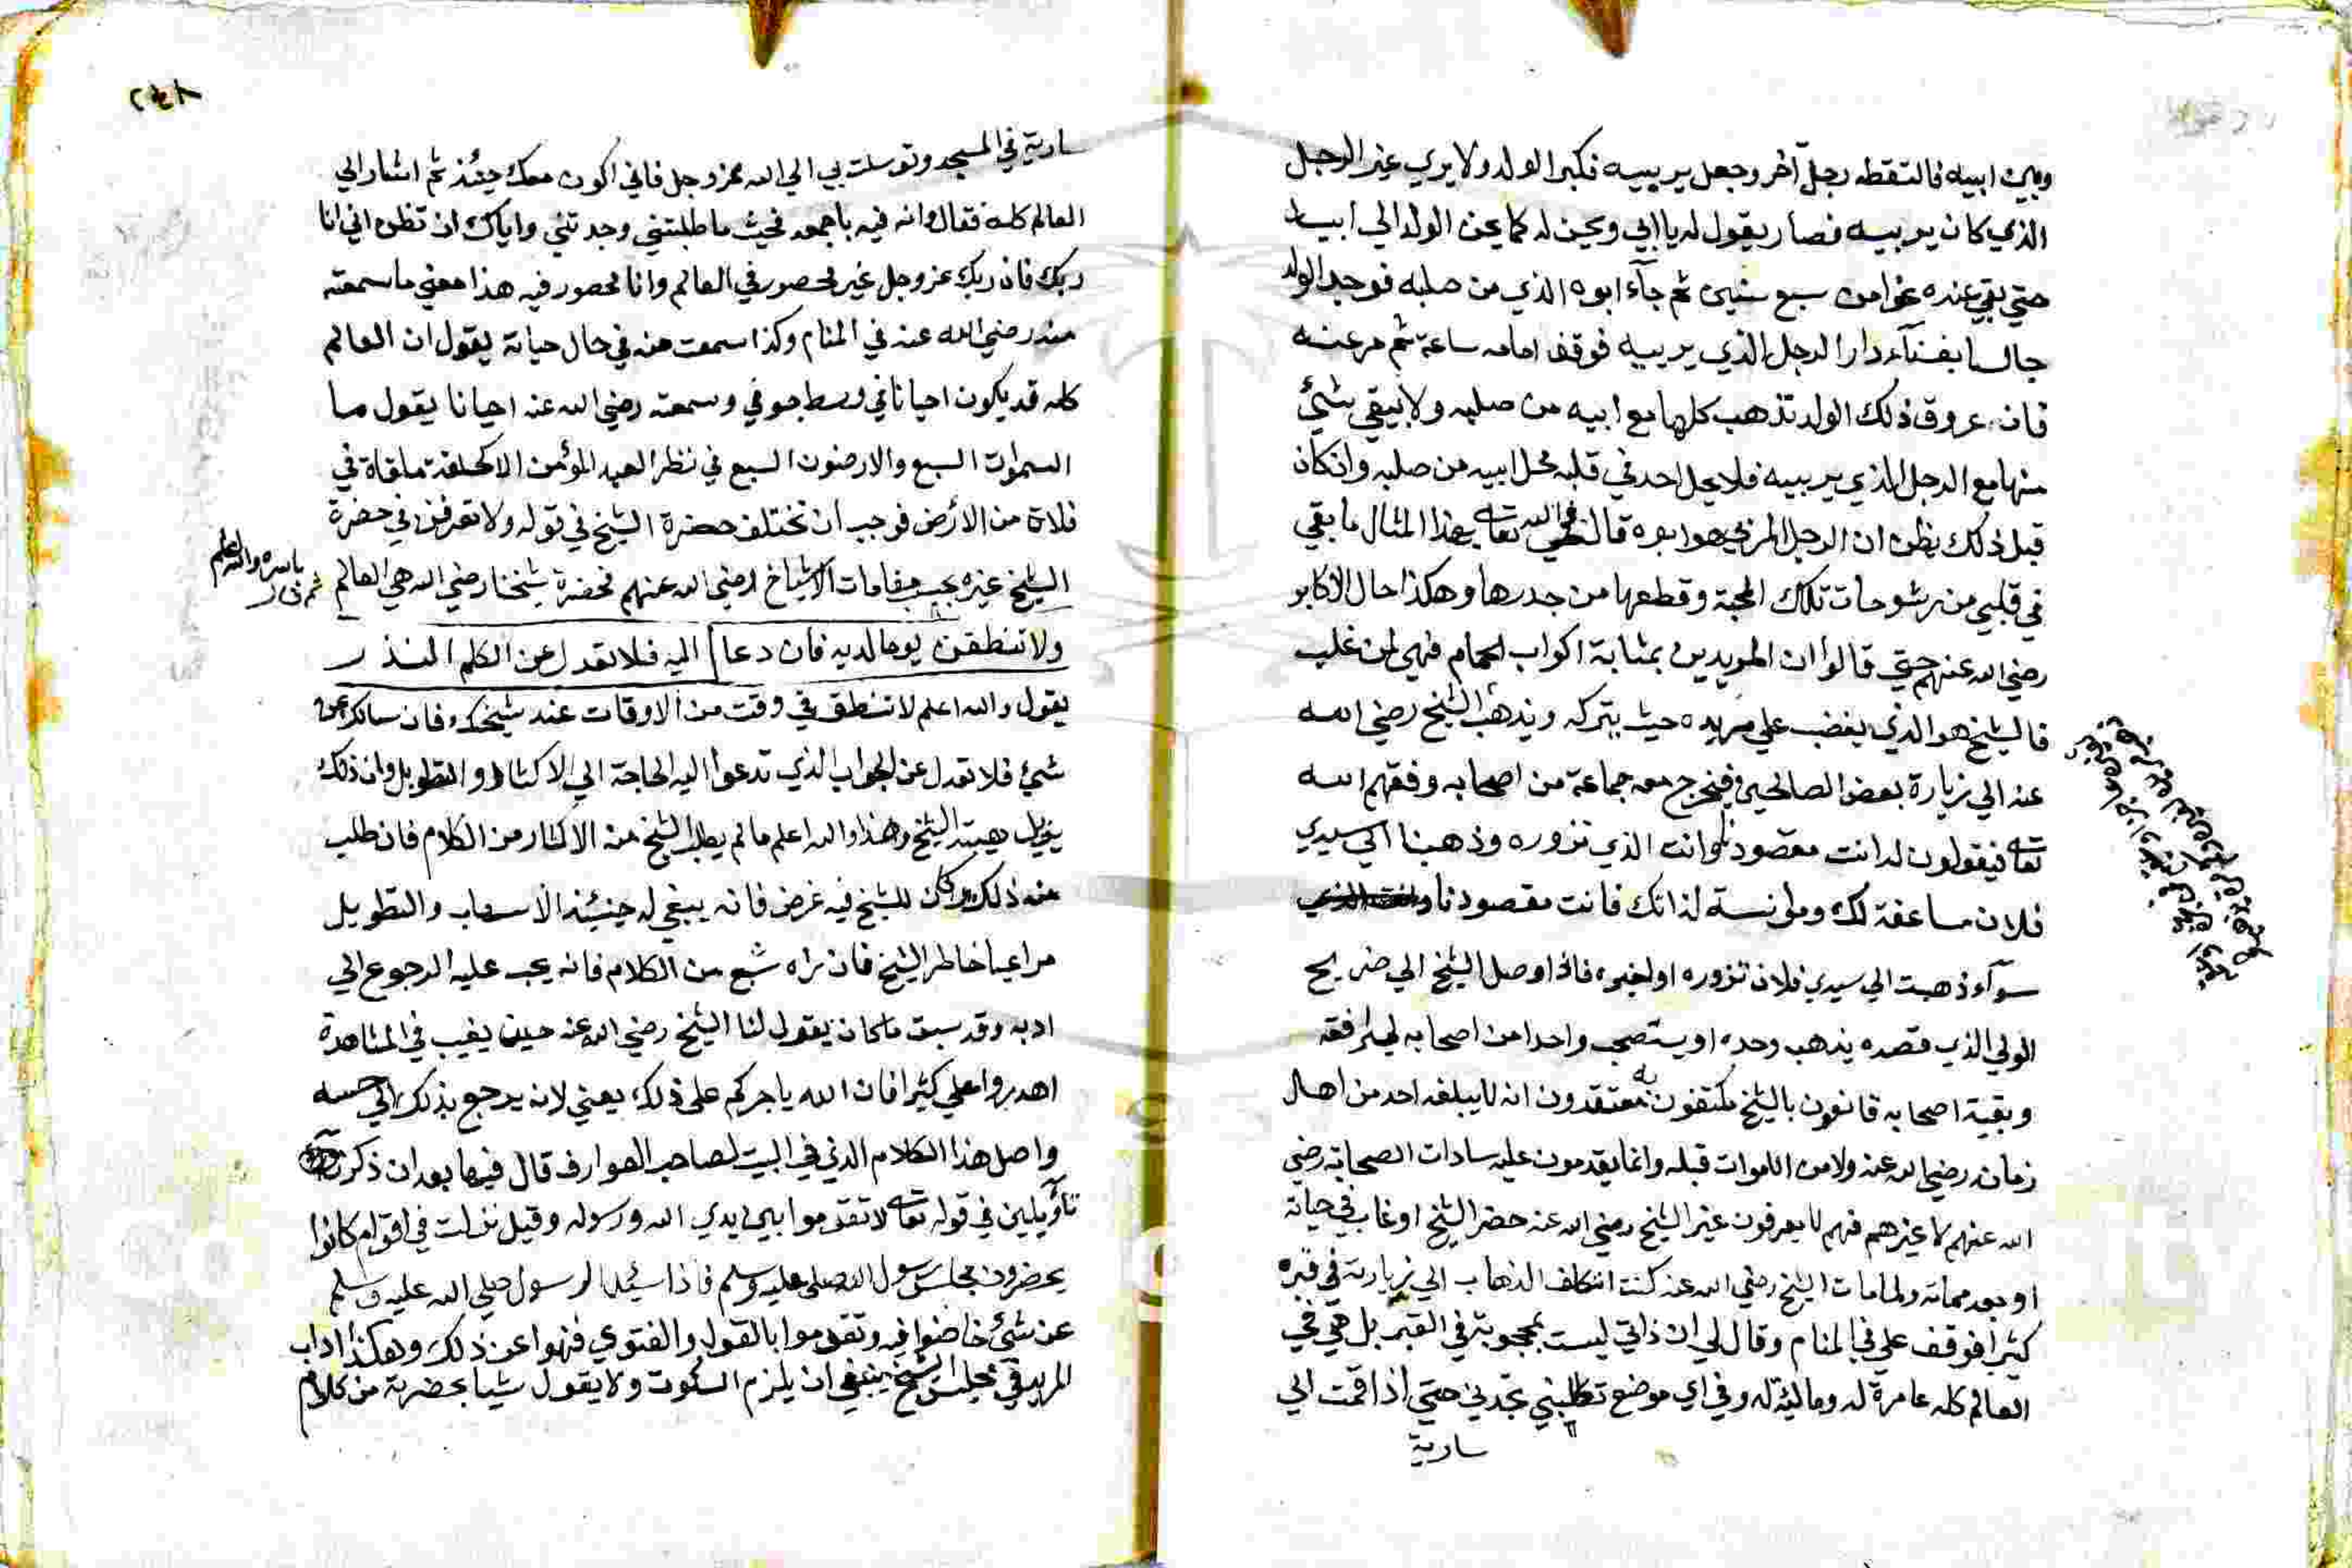 وبين ابيه فالتقطه رجل آخر وجعل يربيه فكبر الولد ولا يري غير الرجل
الذي كان يربيه فصار يقول له يا ابي ويحن له كما يحن الولد الي ابيه
حتي بقي عنده نحوا من سبع سنين ثم جآء ابوه الذي من صلبه فوجد الولد
جالسا بفنآء دار الرجل الذي يربيه فوقف امامه ساعة ثم مر عنه
فان عروق ذلك الولد تذهب كلها مع ابيه من صلبه ولا يبقي شئ
منها مع الرجل الذي يربيه فلا يحل احد في قلبه محل ابيه من صلبه وان كان
قبل ذلك يظن ان الرجل المربي هو ابوه قال تعالي بهذا المثال ما بقي
في قلبي من رشوحات تلك المحبة وقطعها من جدرها وهكذا حال الاكابر
رضي الله عنهم حتي قالوا ان المريدين بمثابة اكواب الحمام فهي لمن غلب
فالشيخ هو الذي يغضب علي مريده حيث يتركه ويذهب الشيخ رضي الله
عنه الي زيارة بعض الصالحين فيخرج معه جماعة من اصحابه وفقهم الله
تعالي فيقولون له انت مقصودنا وانت الذي نزوره وذهبنا الي سيدي
فلان مساعفة لك ومؤنسة لذاتك فانت مقصودنا
سوآء ذهبت الي سيدي فلان تزوره او لغيره فاذا وصل الشيخ الي ضريح
الولي الذي قصده يذهب وحده او يستصحب واحدا من اصحابه ليرافقه
وبقية اصحابه قانعون بالشيخ مكتفون به معتقدون انه لا يبلغه احد من اهل
زمانه رضي الله عنه ولا من الاموات قبله وانما يقدمون عليه سادات الصحابة رضي
الله عنهم لا غيرهم فهم لا يعرفون غير الشيخ رضي الله عنه حضر الشيخ او غاب في حياته
او بعد مماته ولما مات الشيخ رضي الله عنه كنت اتكلف الذهاب الي زيارته في قبره
كثيرا فوقف علي في المنام وقال لي ان ذاتي ليست بمحجوبة في القبر بل هي في
العالم كله عامرة له ومالئة له وفي اي موضع تطلبني تجدني حتي اذا قمت الي
سارية
سارية في المسجد وتوسلت بي الي الله عز وجل فاني اكون معك حينئذ ثم اشار الي
العالم كله فقال وانه فيه باجمعه فحيث ما طلبتني وجدتني واياك ان تظن اني انا
ربك فان ربك عز وجل غير محصور في العالم وانا محصور فيه هذا معني ما سمعته
منه رضي الله عنه في المنام وكذا سمعت منه في حال حياته يقول ان العالم
كله قد يكون احيانا في وسط جوفي وسمعته رضي الله عنه احيانا يقول ما
السموات السبع والارضون السبع في نظر العبد المؤمن الا كحلقة ملقاة في
فلاة من الأرض فوجب ان تختلف حضرة الشيخ في قوله ولا تعرفن في حضرة
الشيخ غيره بحسب مقامات الاشياخ رضي الله عنهم فحضرة شيخنا رضي الله هي العالم
باسره والله اعلم
ثم قال
ولا تنطقن يوما لديه فان دعا اليه فلا تعدل عن الكلم النذر
يقول والله اعلم لا تنطق في وقت من الاوقات عند شيخك فان سالك عن
شئ فلا تعدل عن الجواب الذي تدعوا اليه الحاجة الي الاكثار والتطويل وان ذلك
يزيل هيبة الشيخ وهذا والله اعلم ما لم يطلب الشيخ منه الاكثار من الكلام فان طلب
منه ذلك وكان للشيخ فيه غرض فانه ينبغي له حينئذ الاسهاب والتطويل
مراعيا خاطر الشيخ فان نراه شبع من الكلام فانه يجب عليه الرجوع الي
ادبه وقد سبق ما كان يقول لنا الشيخ رضي الله عنه حين يغيب في المشاهدة
اهدروا علي كثيرا فان الله ياجركم علي ذلك يعني لانه يرجع بذلك الي حسه
واصل هذا الكلام الذي في البيت لصاحب العوارف قال فيها بعد ان ذكر
تأويلين في قوله تعالي لا تقدموا بين يدي الله ورسوله وقيل نزلت في اقوام كانوا
يحضرون مجلس رسول الله صلي عليه وسلم فاذا سئل الرسول صلي الله عليه وسلم
عن شئ خاضوا فيه وتقدموا بالقول والفتوي فنهوا عن ذلك وهكذا اداب
المريد في مجلس الشيخ ينبغي ان يلزم السكوت ولا يقول شيا بحضرته من كلام